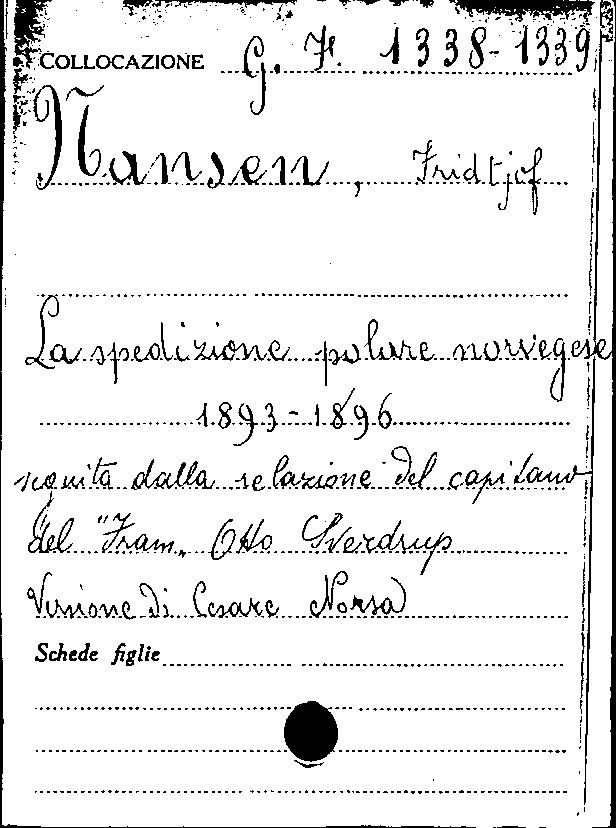 COLLOCAZIONE G. F. 1338-1339
Nansen, Fridtjof
La spedizione polare norvegese
1893-1896
seguita dalla relazione del capitano
del "Fram" Otto Sverdrup
Versione di Cesare Norsa
Schede figlie